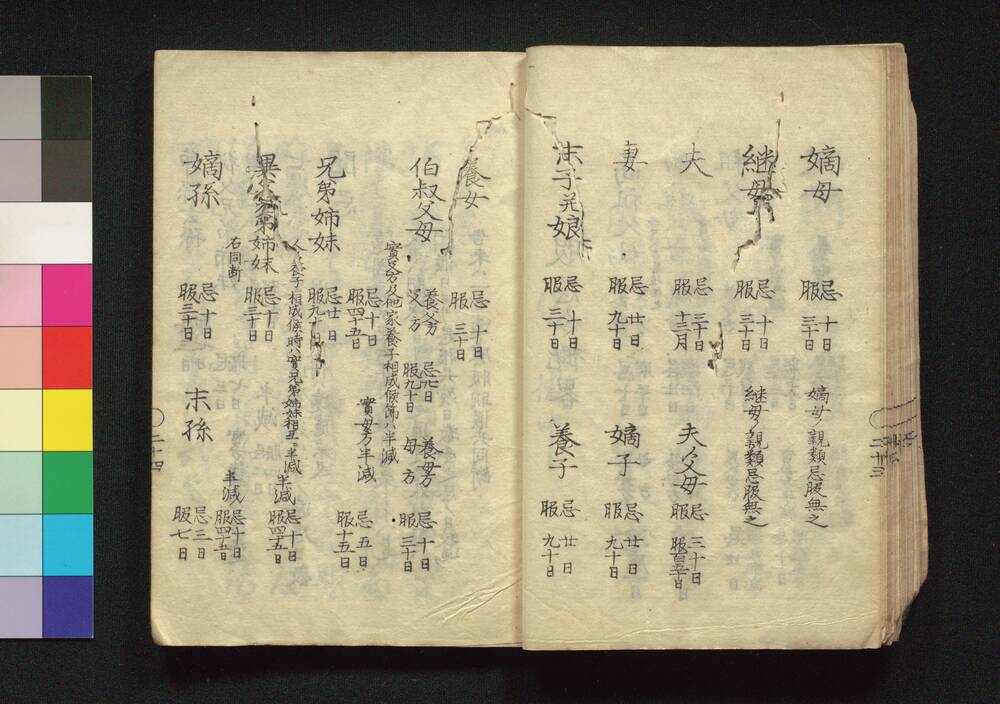 嫡母 忌十日 服三十日
嫡母ノ親類忌服無之
継母 忌十日 服三十日
継母ノ親類忌服無之
夫 忌三十日 服十三月
夫ノ父母 忌三十日 服百五十日
妻 忌廿日 服九十日
嫡子 忌廿日 服九十日
末子并娘 忌十日 服三十日
養子 忌廿日 服九十日
二十三
養女 忌十日 服三十日
伯叔父母 養父方 父方 忌廿日 服九十日
養母方 母方 忌十日 服三十日
實父方又他家養子相成候節ハ半減
忌十日 服四十五日
實母方半減 忌五日 服十五日
兄弟姉妹 忌廿日 服九十日
養子相成候時ハ實兄弟姉妹相互ニ半減
半減 忌十日 服四十五日
異父兄弟姉妹 忌十日 服三十日
右同断
半減 忌十日 服四十五日
嫡孫 忌十日 服三十日
末孫 忌三日 服七日
二十四